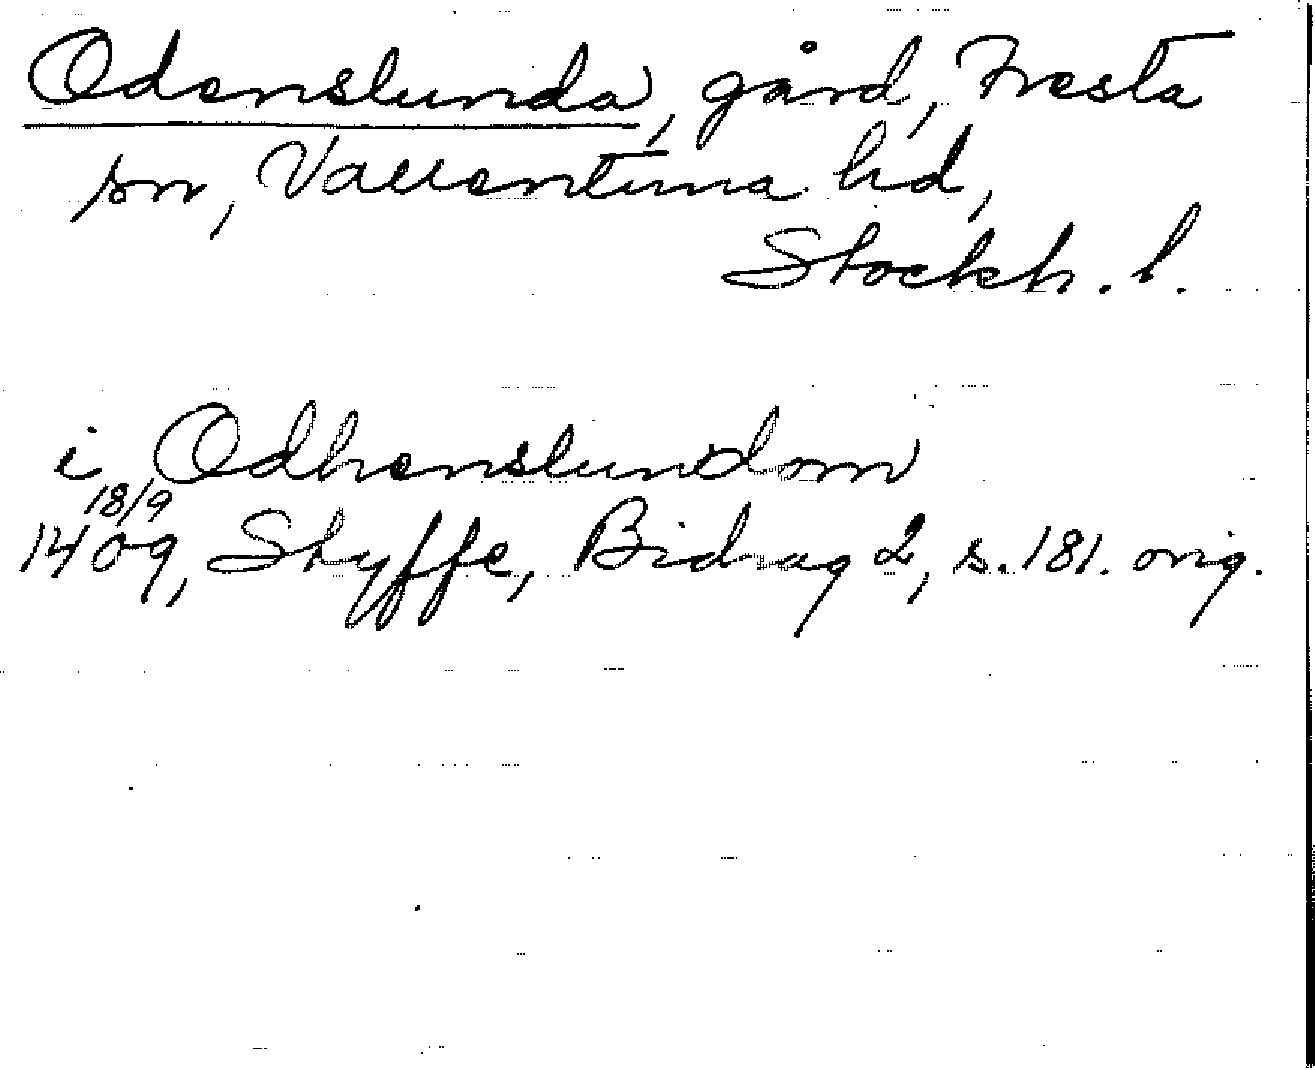 Odenslunda, gård, Fresta
sn, Vallentuna hd,
Stockh. l.
i Odhenslundom
18/9
1409, Styffe, Bidrag 2, s. 181. orig.